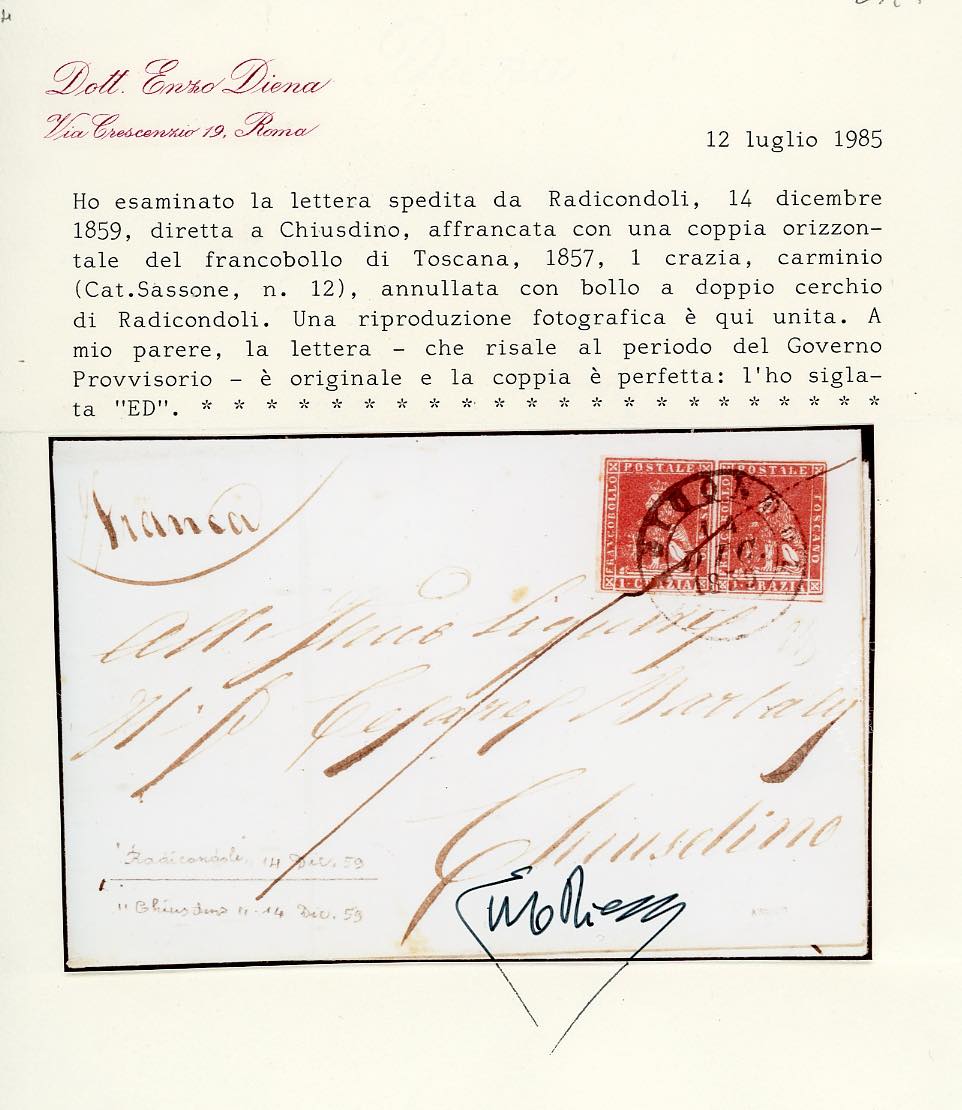 Dott. Enzo Diena
Via Crescenzio 19, Roma
12 luglio 1985
Ho esaminato la lettera spedita da Radicondoli, 14 dicembre
1859, diretta a Chiusdino, affrancata con una coppia orizzon-
tale del francobollo di Toscana, 1857, 1 crazia, carminio
(Cat.Sassone, n. 12), annullata con bollo a doppio cerchio
di Radicondoli. Una riproduzione fotografica è qui unita. A
mio parere, la lettera - che risale al periodo del Governo
Provvisorio - è originale e la coppia è perfetta: l'ho sigla-
ta "ED". * * * * * * * * * * * * * * * * * * * * *
franca
FRANCOBOLLO POSTALE
1 CRAZIA
POSTALE TOSCANO
1 CRAZIA
14
DIC.
1859
Chiusdino
Radicondoli, 14 Dic. 59
"Chiusdino" 14 Dic. 59
Enzo Diena